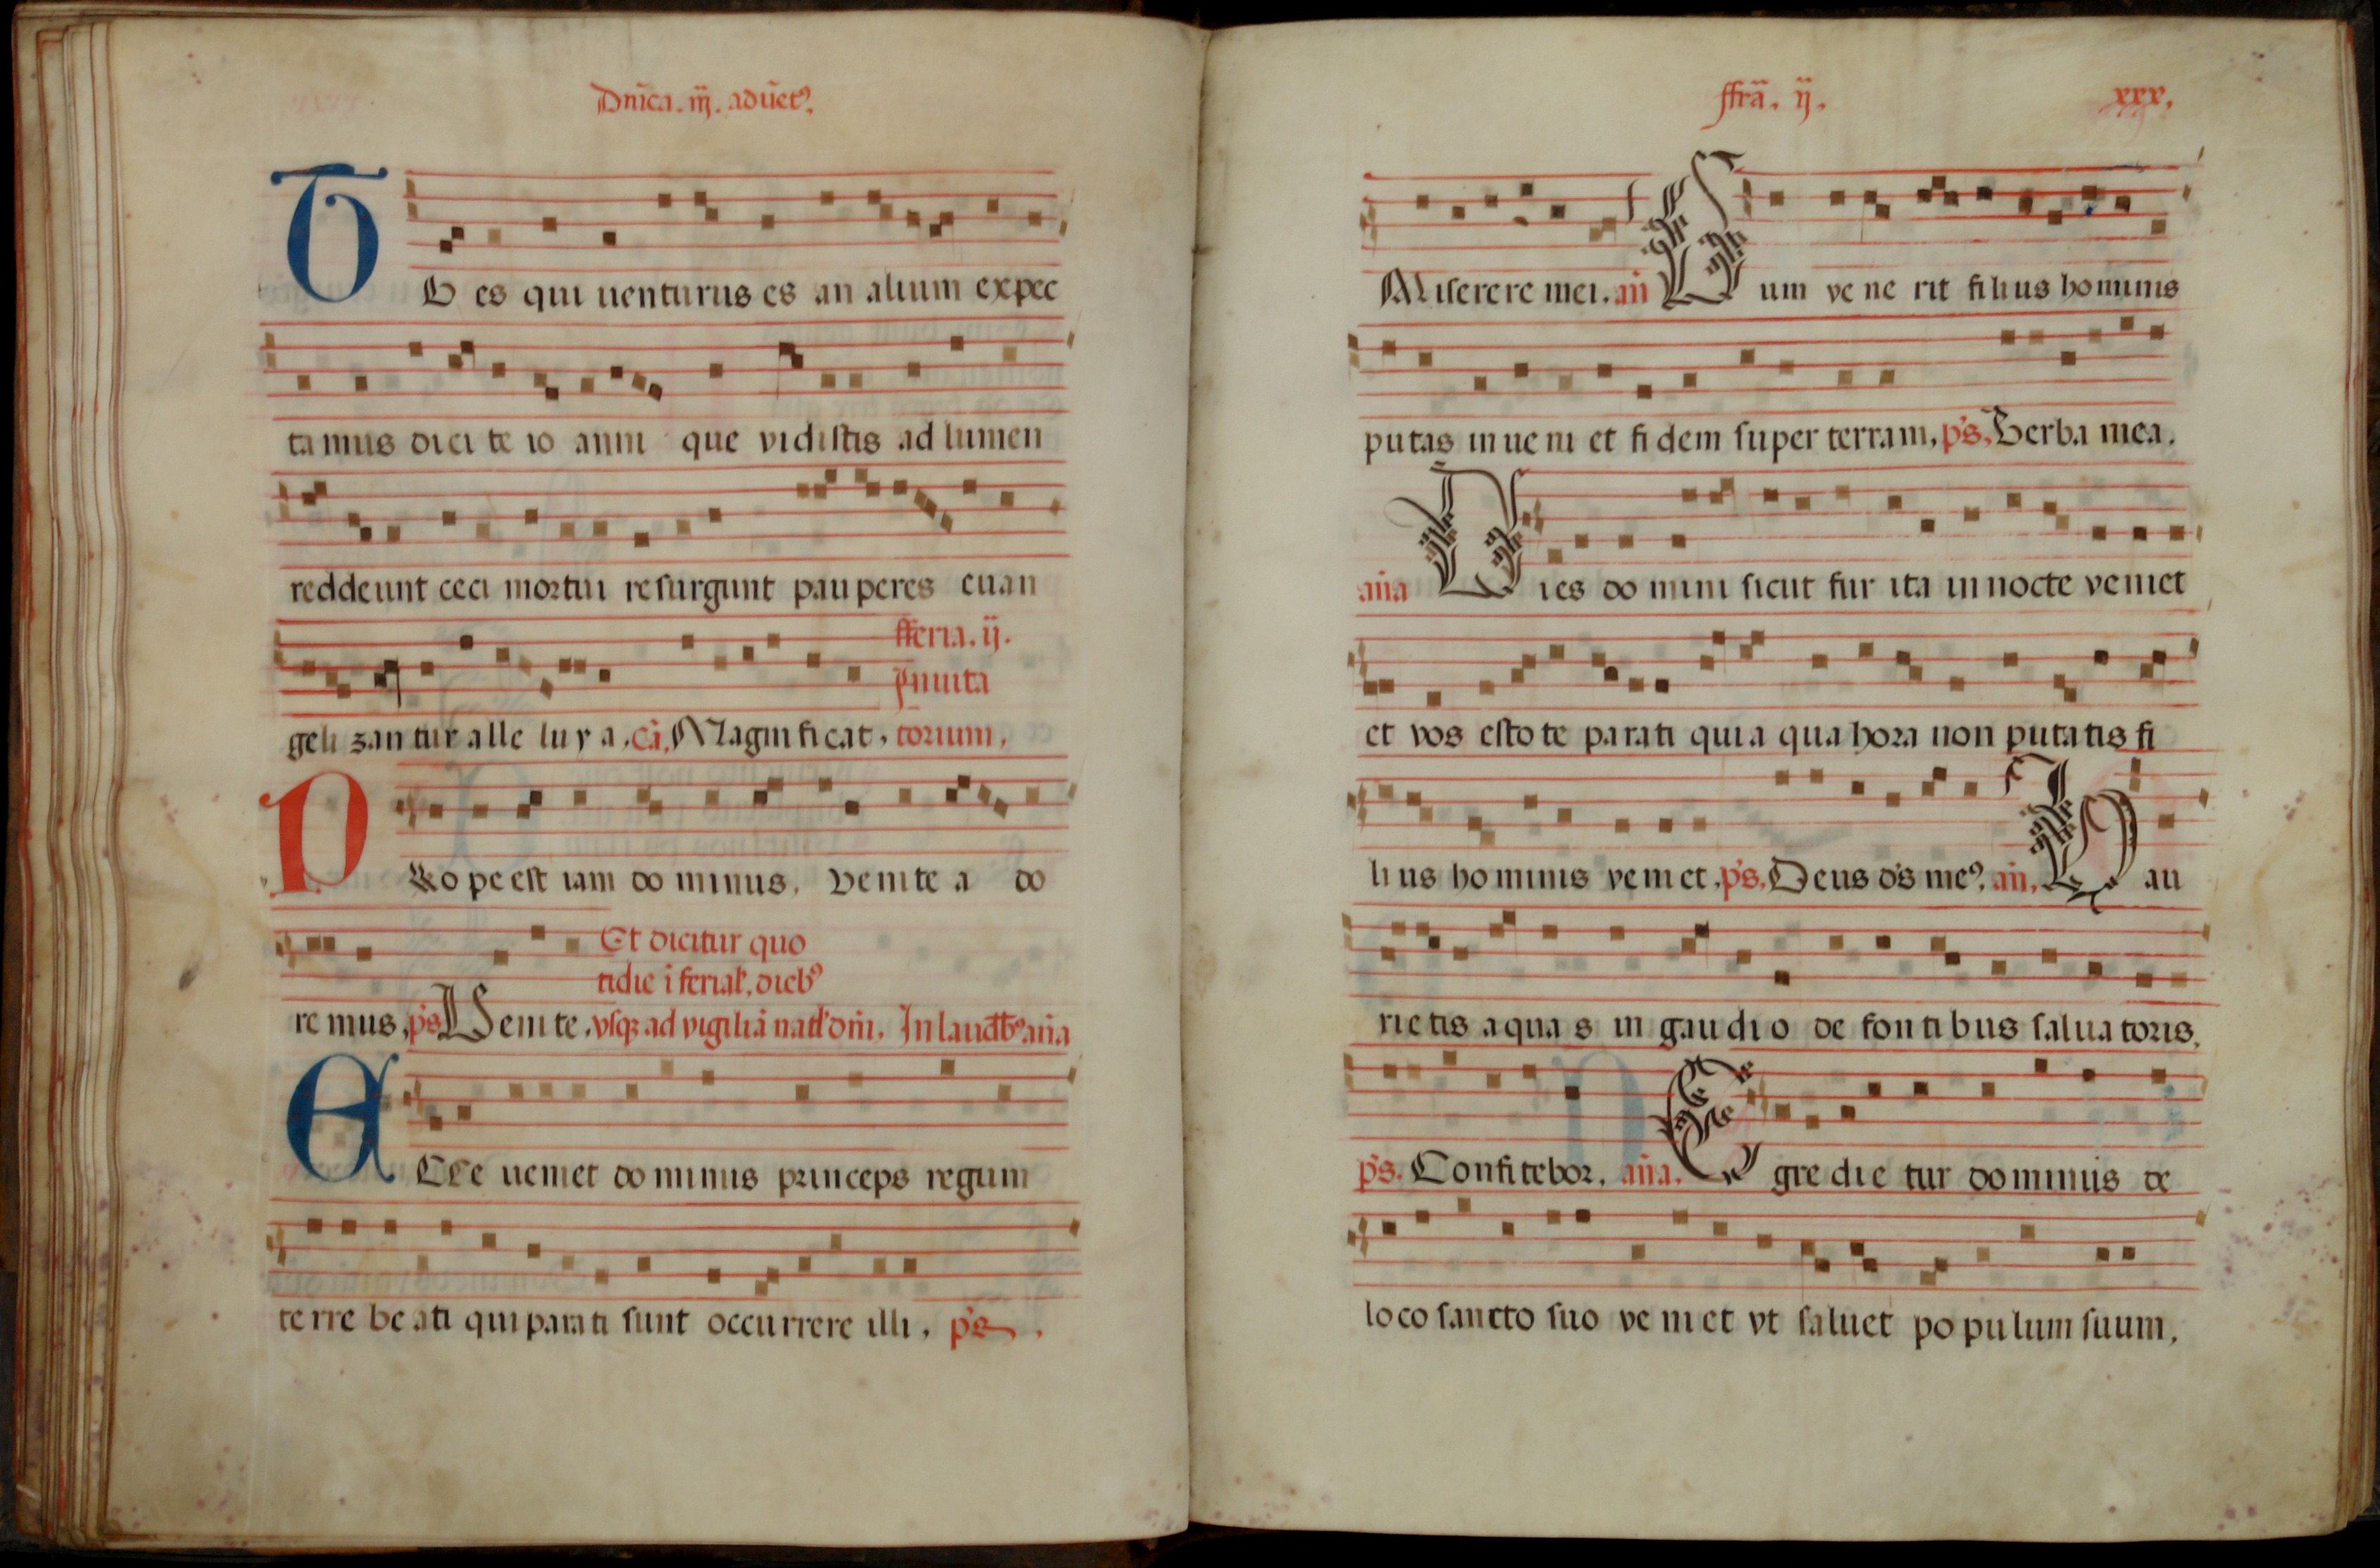 Dnĩca. iij. aduẽt⁹.
TU es qui uenturus es an alium expec
ta mus dici te io anni que vidistis ad lumen
reddeunt ceci mortui resurgunt pau peres euan
fferia. ij.
Inuita
geli zan tur alle lu y a, cã, Magnificat, torium,
PRo pe est iam do minus, venite a do
Et dicitur quo
tidie ĩ ferial'. dieb⁹
re mus, p̃s Venite, vsqz ad vigiliã natl' dñi. In laudib⁹ añã
ECce ueniet do minus princeps regum
te rre be ati qui parati sunt occurrere illi, p̃s.
ffrã. ij.
xxx.
Miserere mei. añ Cum ve ne rit filius hominis
putas in ue ni et fi dem super terram, p̃s, Verba mea.
añã Dies do mini sicut fur ita in nocte veniet
et vos esto te parati quia qua hora non putatis fi
li us ho minis veniet, p̃s, Deus d̃s me⁹, añ, Hau
rietis aqua s in gaudi o de fontibus salua toris,
p̃s. Confitebor, añã. Egre die tur dominus de
loco sancto suo ve ni et vt saluet po pulum suum,